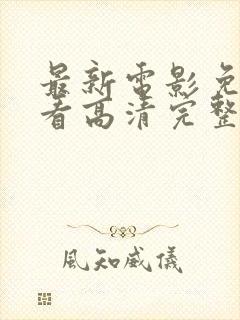 最新電影免
看高清完整
風知威儀